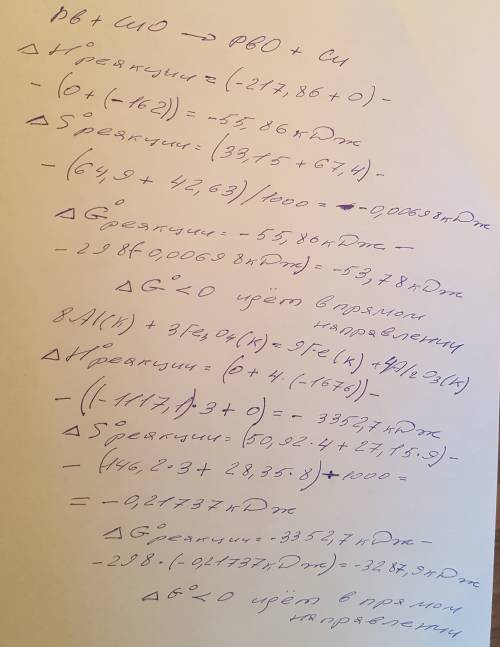 Pb + CuO → PbO + Cu
ΔH° реакции = (-217,86 + 0) -
- (0 + (-162)) = -55,86 кДж
ΔS° реакции = (33,15 + 67,4) -
- (64,9 + 42,63)/1000 = -0,00698 кДж
ΔG° реакции = -55,86 кДж -
- 298(-0,00698 кДж) = -53,78 кДж
ΔG° < 0 идёт в прямом
направлении
8Al(к) + 3Fe₃O₄(к) = 9Fe(к) + 4Al₂O₃(к)
ΔH° реакции = (0 + 4·(-1676)) -
- ((-1117,1)·3 + 0) = - 3352,7 кДж
ΔS° реакции = (50,92·4 + 27,15·9) -
- (146,2·3 + 28,35·8) 1000 =
= -0,21737 кДж
ΔG° реакции = -3352,7 кДж -
-298·(-0,21737 кДж) = -3287,9 кДж
ΔG° < 0 идёт в прямом
направлении